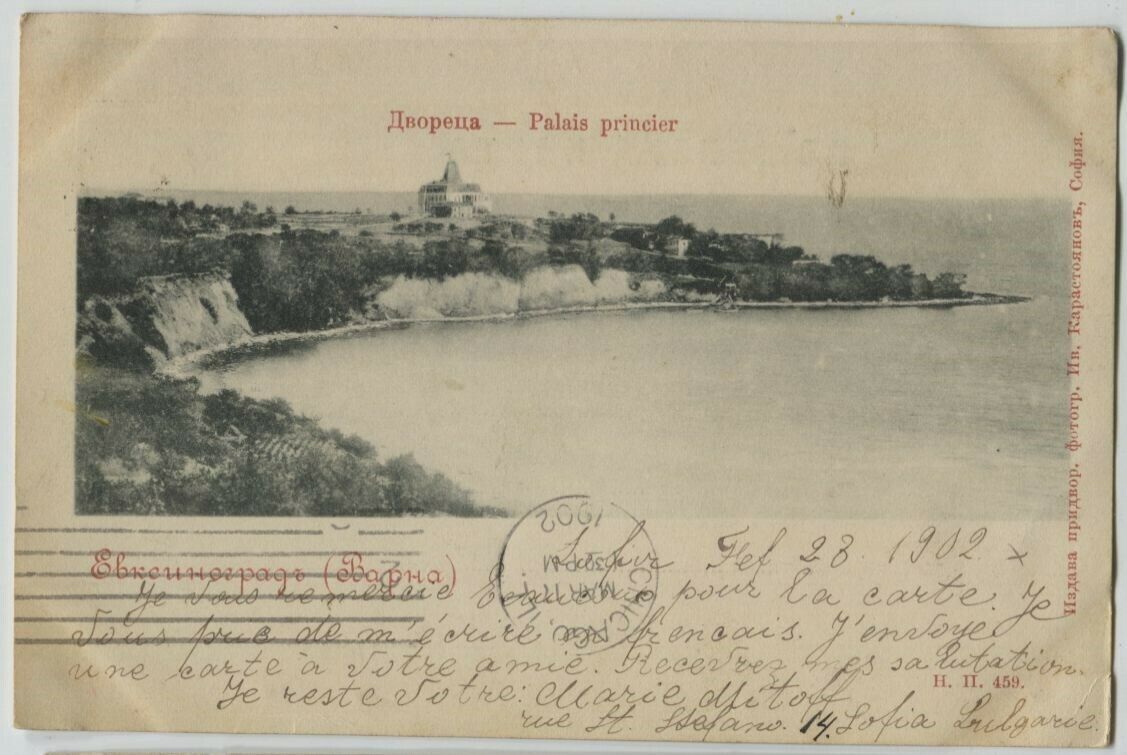 Двореца — Palais princier
Издава придвор. фотогр. Ив. Карастояновъ, София.
Евксиноградъ (Варна)
1902
30 PM
MAR 17
CHICAGO
Fef 28. 1902
Je Vous remercie beaucoup pour la carte. Je
Vous prie de m'écrire en frencais. J'envoye
une carte à Votre amie. Recevrez mes salutation.
Н. П. 459.
Je reste Votre: Marie Mitoff
rue St. Stefano. 14. Sofia Bulgarie.